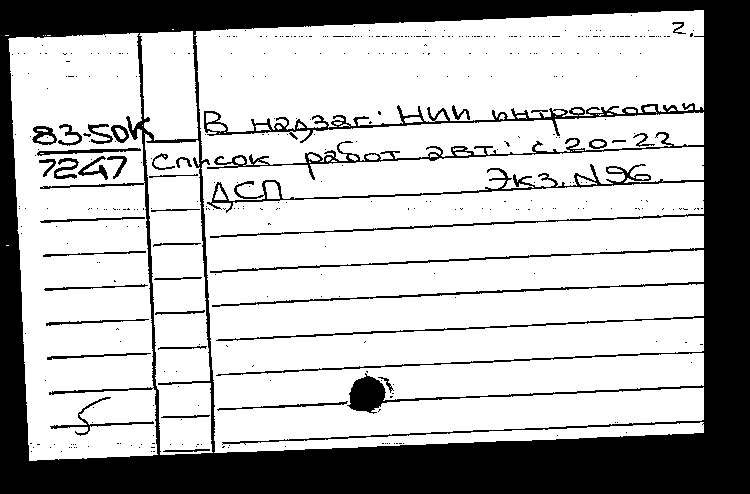 2.
83-50К В надзаг.: НИИ интроскопии.
7247 Список работ авт.: с. 20-22.
ДСП. Экз. N96.
5